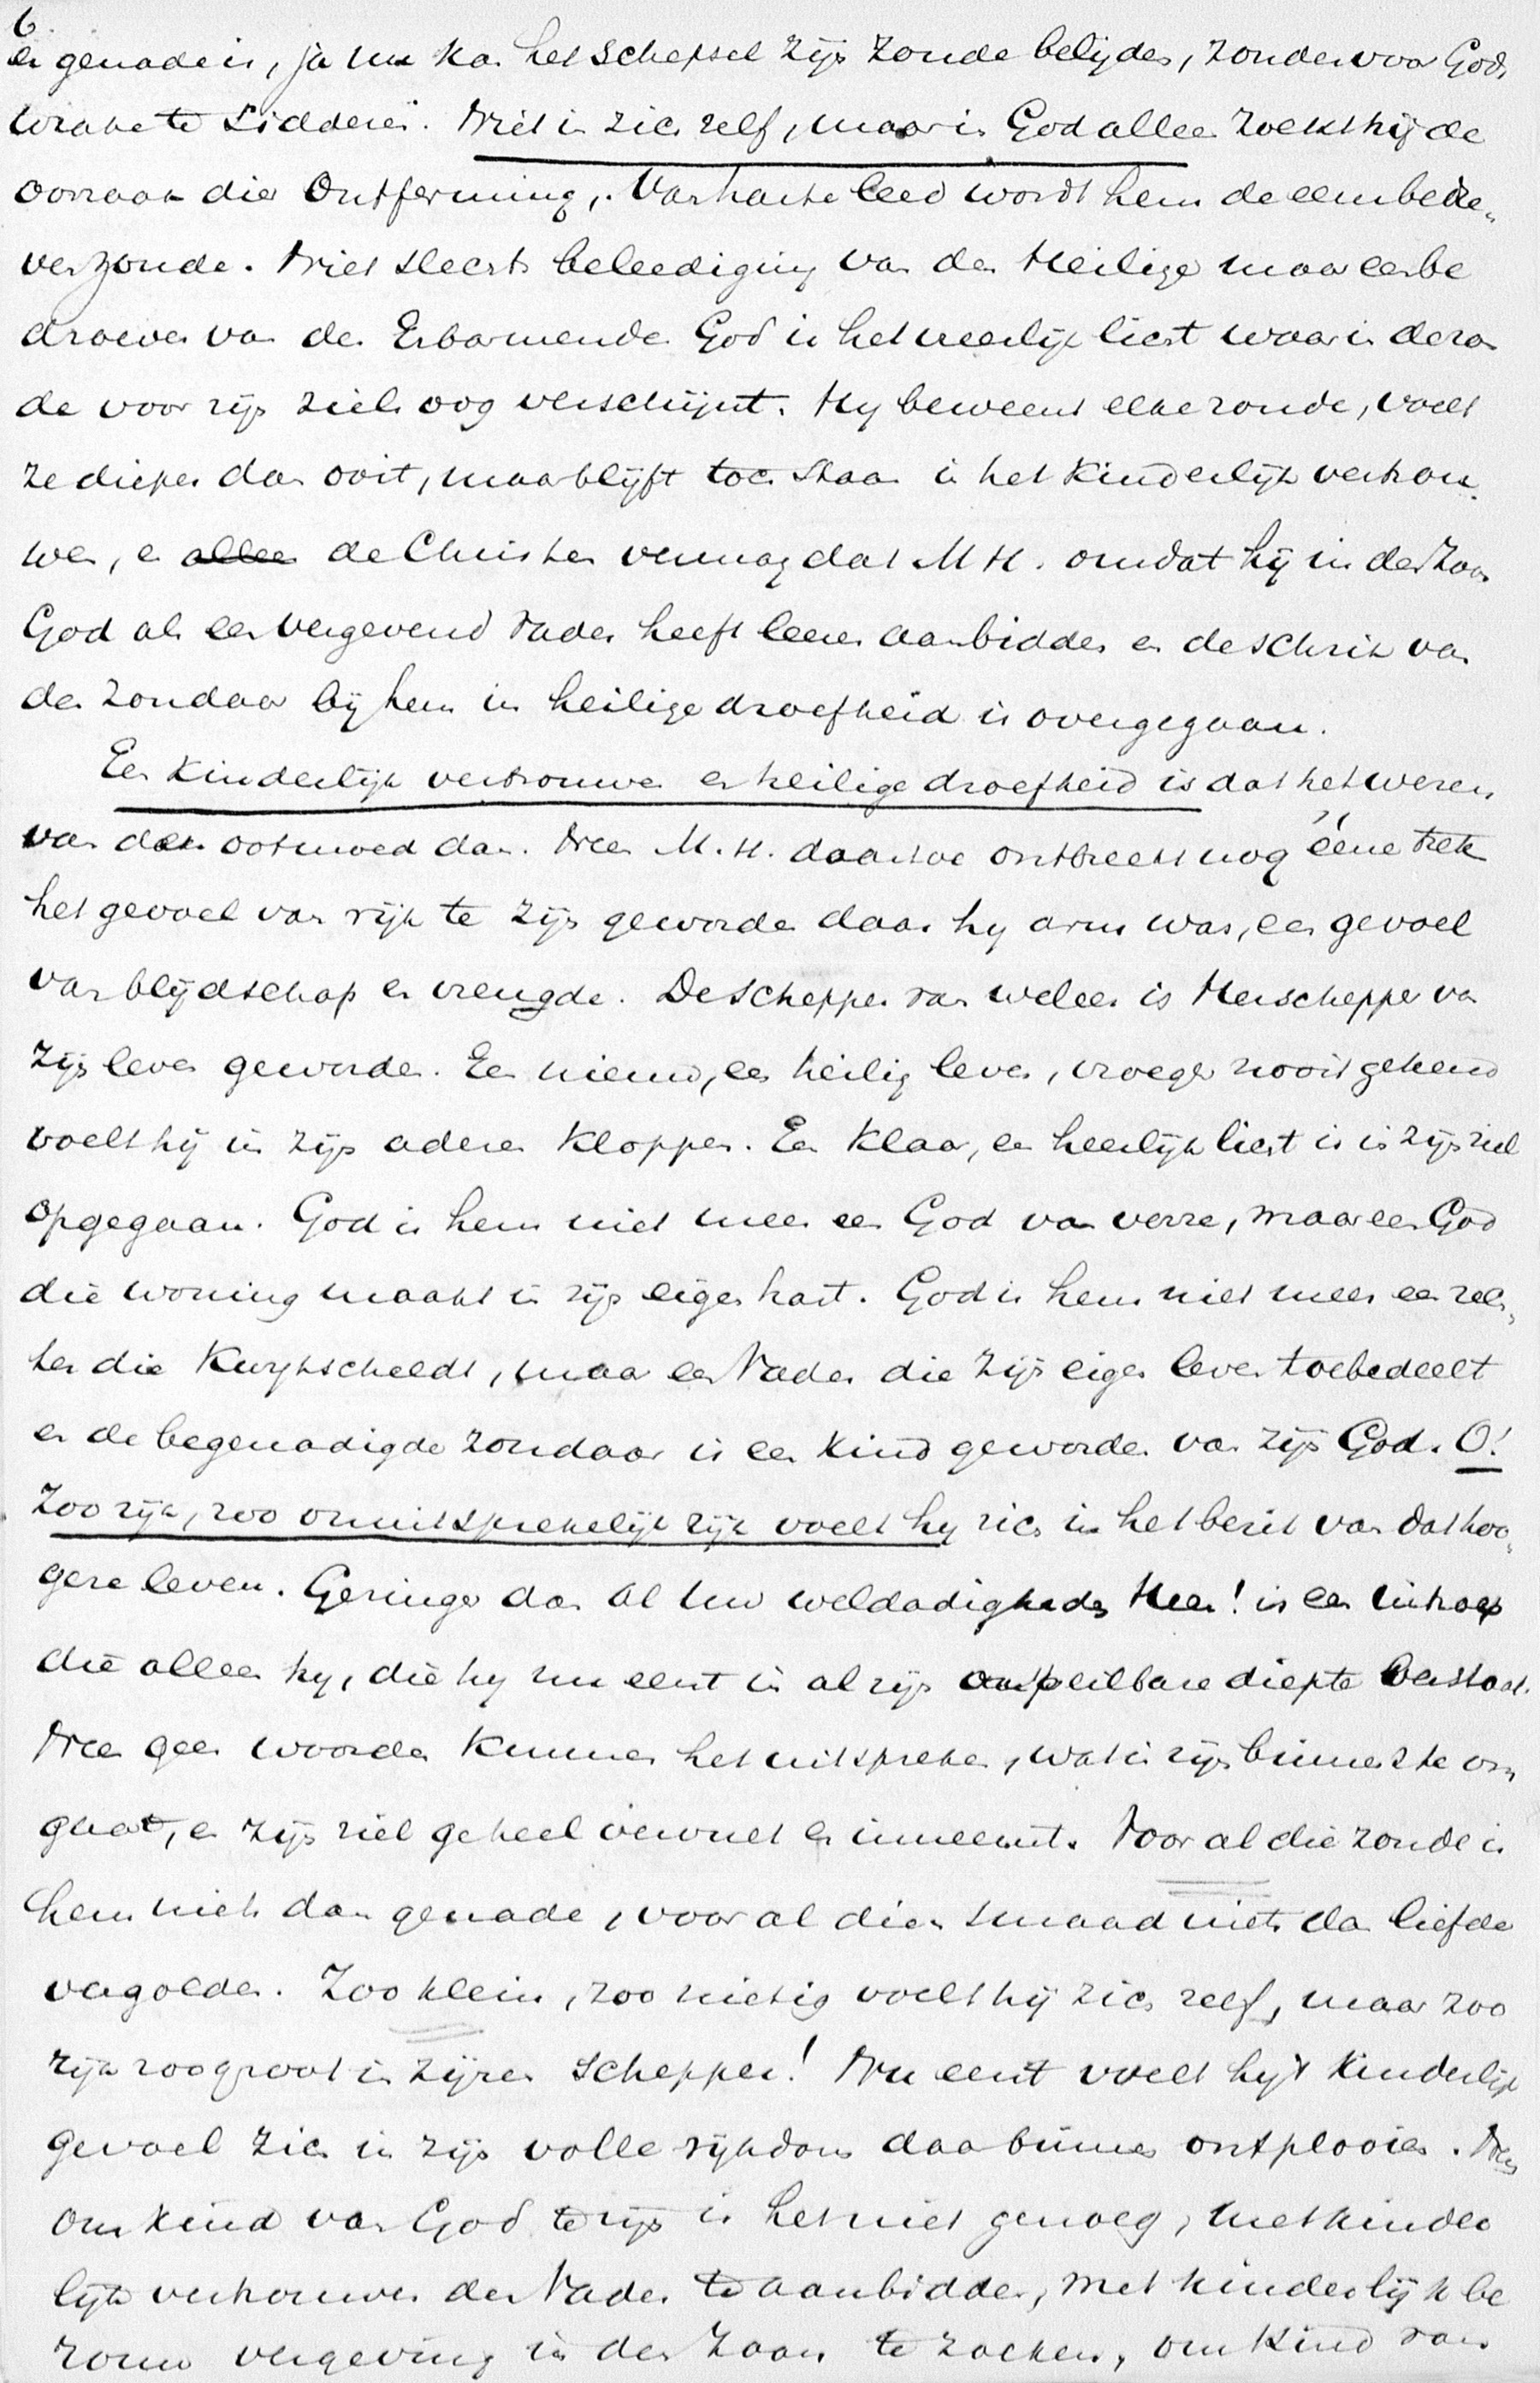 6.
er genade is, ja nu kan het schepsel zijn zonde belijden, zonder voor Gods
wrake te sidderen. Niet in zich zelf, maar in God alleen zoekt hij de
oorzaak dier Ontferming. Van harte leed wordt hem de eens bedre-
ven zonde. Niet slechts beleediging van den Heilige maar een be
droeven van den Erbarmende God is het vreeslijk licht waarin de zon
de voor zijn ziels oog verschijnt. Hy beweent elke zonde, voelt
ze dieper dan ooit, maar blijft toch staan in het Kinderlijk vertrou
wen, en alleen de Christen vermag dat M H. omdat hij in den Zoon
God als een vergevend Vader heeft leeren aanbidden en de schrik van
den zondaar bij hem in heilige droefheid is overgegaan.
Een Kinderlijk vertrouwen en heilige droefheid is dat het wezen
van den ootmoed dan. Neen M.H. daartoe ontbreekt nog ééne trek
het gevoel van rijk te zijn geworden daar hy arm was, een gevoel
van blijdschap en vreugde. De schepper van weleer is Herschepper van
zijn leven geworden. Een nieuw, een heilig leven, vroeger nooit gekend
voelt hij in zijn aderen kloppen. Een klaar, een heerlijk licht is in zijn ziel
opgegaan. God is hem niet meer een God van verre, maar een God
die woning maakt in zijn eigen hart. God is hem niet meer een rech-
ter die Kwytscheldt, maar een Vader die zijn eigen leven toebedeelt
en de begenadigde zondaar is een kind geworden van zijn God. O!
Zoo rijk, zoo onuitsprekelijk rijk voelt hy zich in het bezit van dat hoo-
gere leven. Geringer dan al Uw weldadigheden Heer! is een uitroep
die alleen hy, die hy nu eerst in al zijn onpeilbare diepte verstaat.
Neen geen woorden kunnen het uitspreken, wat in zijn binnenste om
gaat, en zijn ziel geheel vervult en inneemt. Voor al die zonde is
hem niets dan genade, voor al dien smaad niets dan liefde
vergolden. Zoo klein, zoo nietig voelt hij zich zelf, maar zoo
rijk zoo groot in zijnen Schepper! Nu eerst voelt hy 't Kinderlijk
gevoel zich in zijn volle rijkdom daar binnen ontplooien. Neen
om kind van God te zijn is het niet genoeg, met kinder
lijk vertrouwen den Vader te aanbidden, met kinderlijk be
rouw vergeving in den Zoon te zoeken, om Kind van